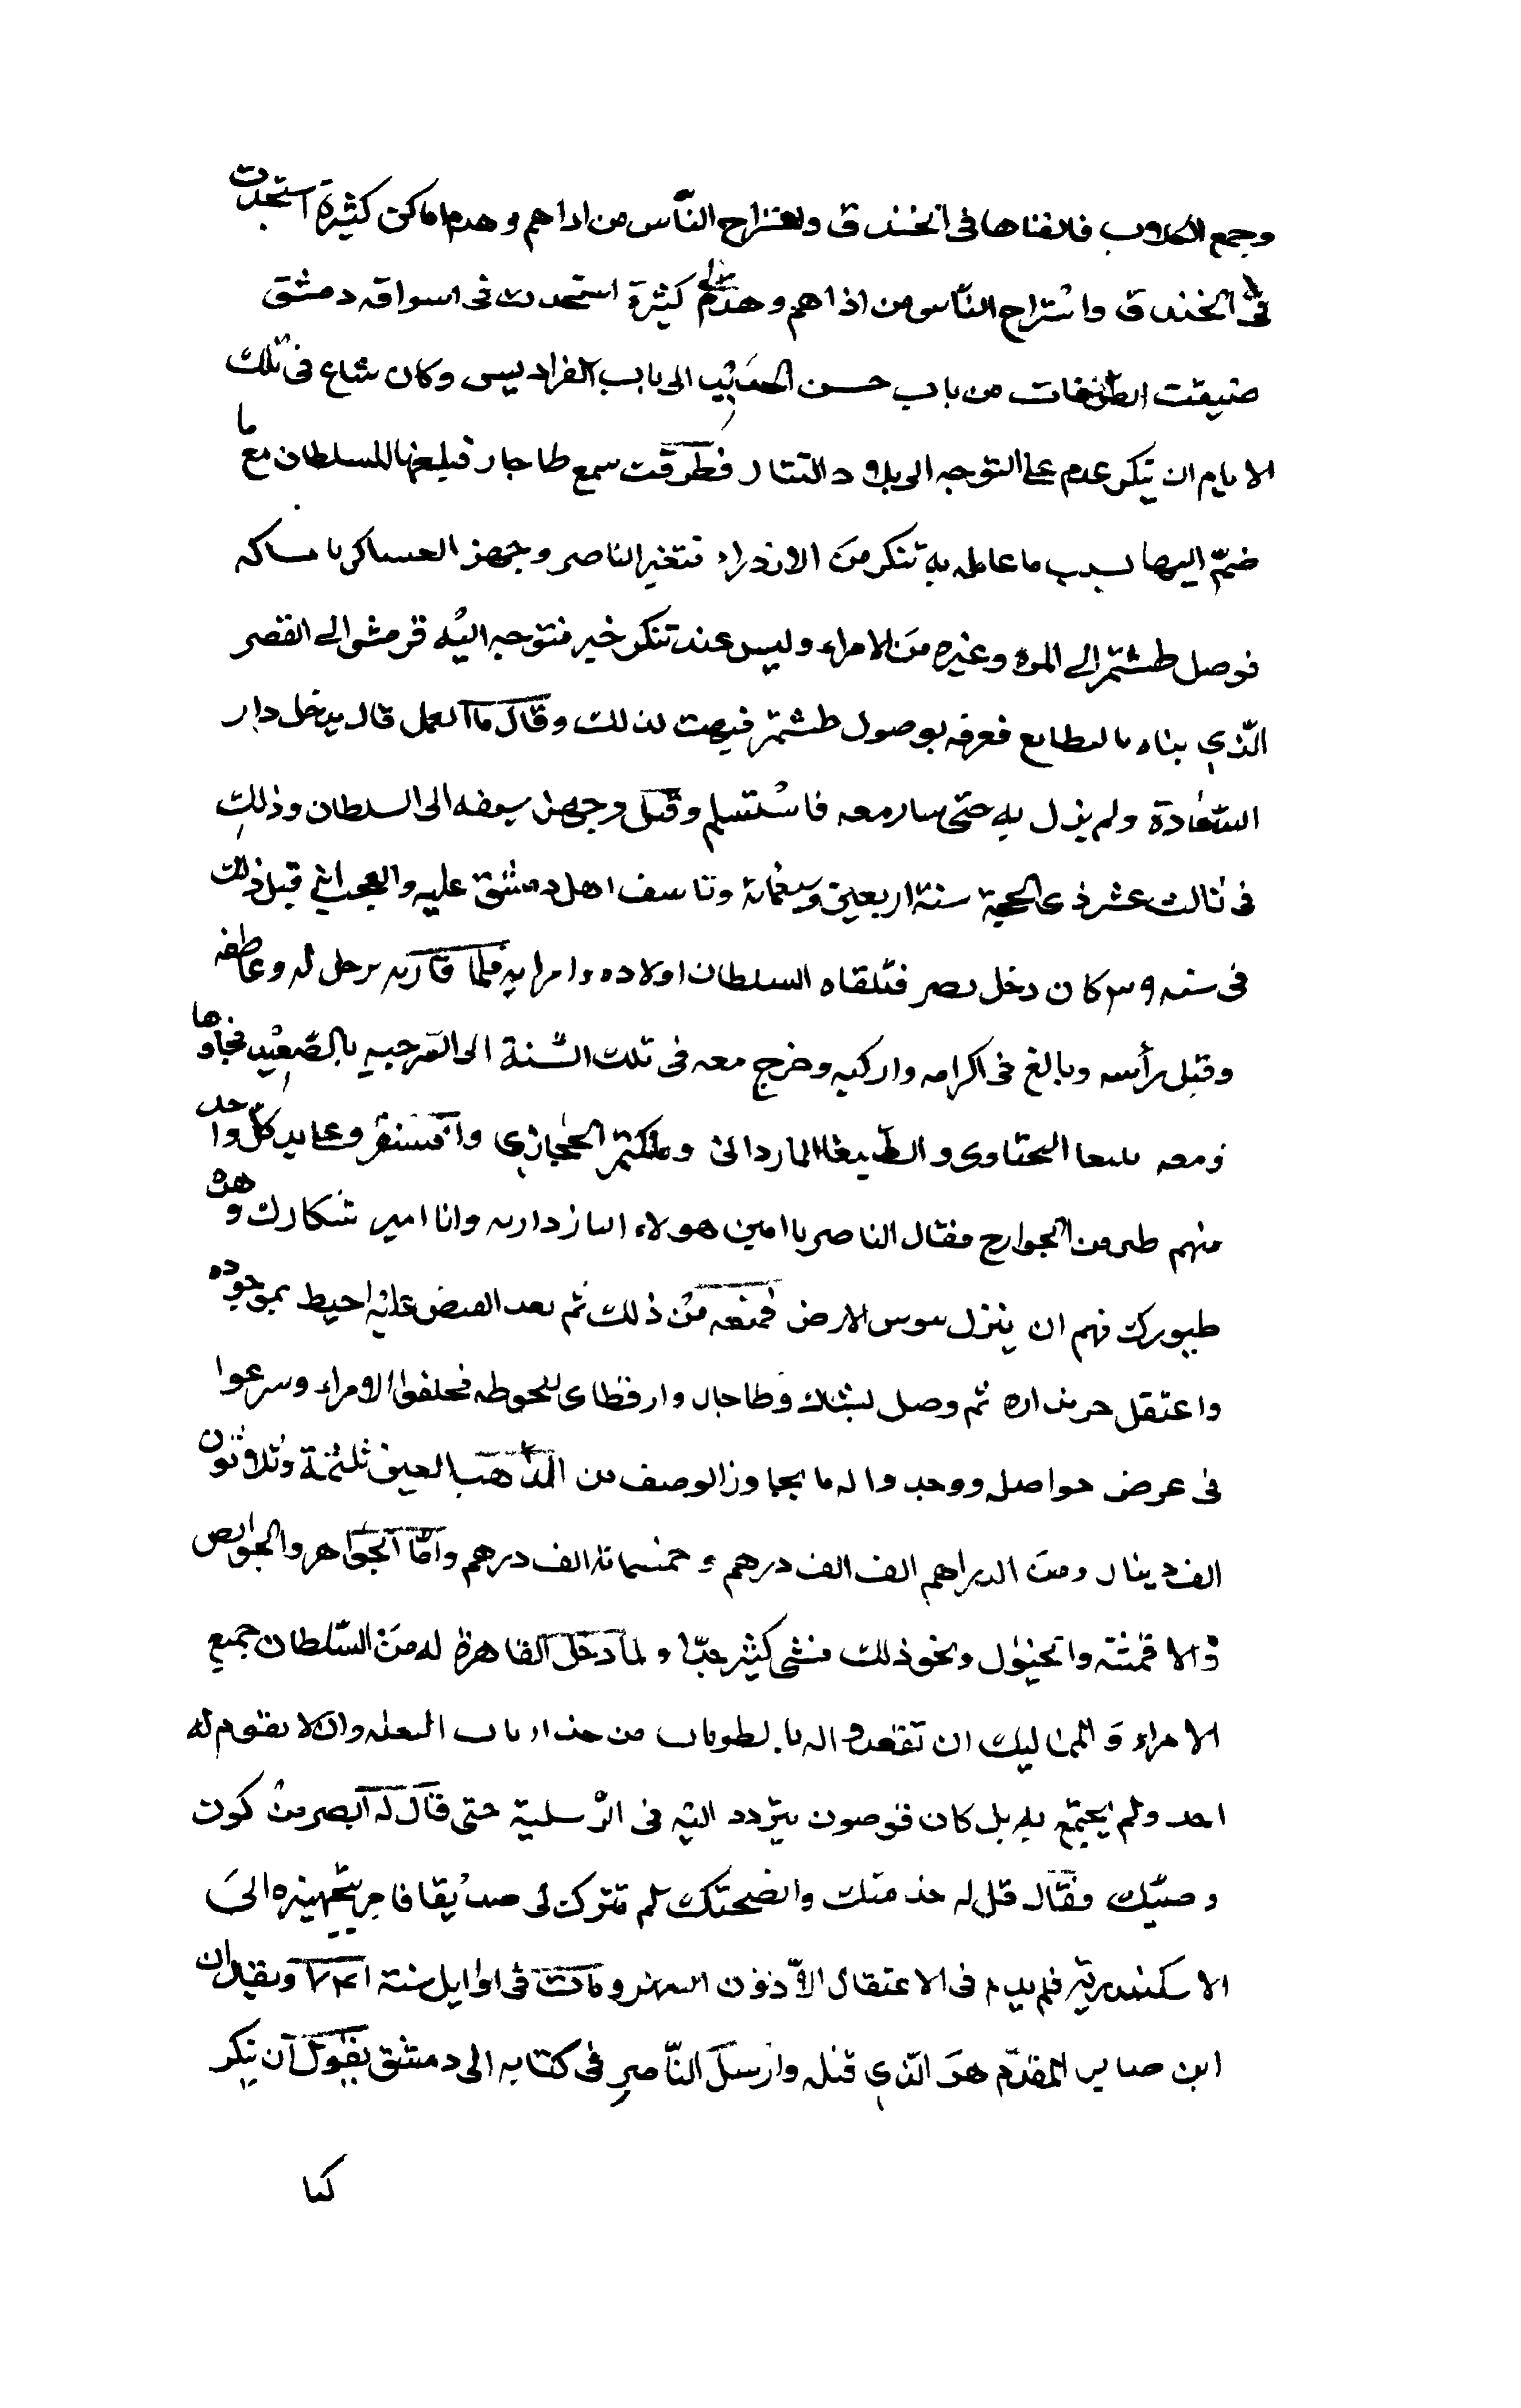 وجمع الكلاب فالقاها في الخندق واستراح الناس من اداهم وهدم اماكن كثيرة استجدت
في الخندق واستراح الناس من اذاهم وهدم كثيرة استجدت في اسواق دمشق
ضيقت الطرقات من باب حسن الى باب الفراديس وكان شاع في تلك
الايام ان تنكر عدم على التوجه الى بلاد التتار فطرقت سمع طاجار فبلغها للسلطان مع ما
ضم اليها بسبب ما عامله به تنكر من الازدراء فتغير الناصر وجهز العساكر بامساكه
فوصل طشتمر الى المزه وغيره من الامراء وليس عند تنكر خبر فتوجه اليه قرمشى الى القصر
الذي بناه بالقطايع فعرفه بوصول طشتمر فبهت لذلك وقال ما العمل قال يدخل دار
السعادة ولم يزل به حتى سار معه فاستسلم وقيل وجهز سيفه الى السلطان وذلك
في ثالث عشر ذى الحجة سنة اربعين وسبعمائة وتاسف اهل دمشق عليه والعجب انه قبل ذلك
في سنه ٣٩ كان دخل مصر فتلقاه السلطان اولاده وامرايه فلما قاربه ترجل له وعانقه
وقبل رأسه وبالغ في اكرامه واركبه وخرج معه في تلك السنة الى الوجه بالصعيد فجاوها
ومعه يلبغا اليحياوى والطنبغا الماردانى وملكتمر الحجازي واقسنقر وعلى يد كل واحد
منهم طير من الجوارح فقال الناصر يا امير هولاء البازداريه وانا امير شكارك وهذه
طيورك فهم ان ينزل ببوس الارض فمنعه من ذلك ثم بعد القبض عليه احيط بموجوده
واعتقل خزنداره ثم وصل بشتاك وطاجار وارقطاى للحوطه فحلفوا الامراء وشرعوا
في عرض حواصله ووجدوا له ما يجاوز الوصف من الذهب العين ثلثمئة وثلاثون
الف دينار ومن الدراهم الف الف درهم وخمسمائة الف درهم واما الجواهر والحوايص
والاقمشة والخيول ونحو ذلك فشى كثير جدا ولما دخل القاهرة له من السلطان جميع
الامراء والمماليك ان تقعدوا له بالطرقات من حد باب القلعه وان لا يقوم له
احد ولم يجتمع به بل كان قوصون يتردد اليه في الرسلية حتى قال له ابصر من كون
وصيك فقال قل له خدمتك ونصيحتك لم تترك لى صديقا فامر بتجهيزه الى
الاسكندرية فلم يدم في الاعتقال الا دون الشهر ومات في اوايل سنة ٧٤١ ويقال ان
ابن صابر المقدم هو الذي قتله وارسل الناصر في كتابه الى دمشق يقول ان تنكر
كنا